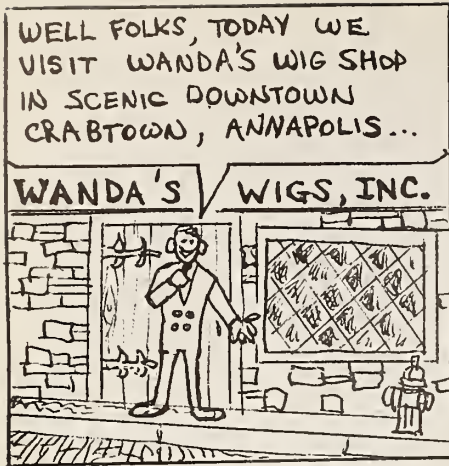 WELL FOLKS, TODAY WE
VISIT WANDA'S WIG SHOP
IN SCENIC DOWNTOWN
CRABTOWN, ANNAPOLIS...
WANDA'S WIGS, INC.